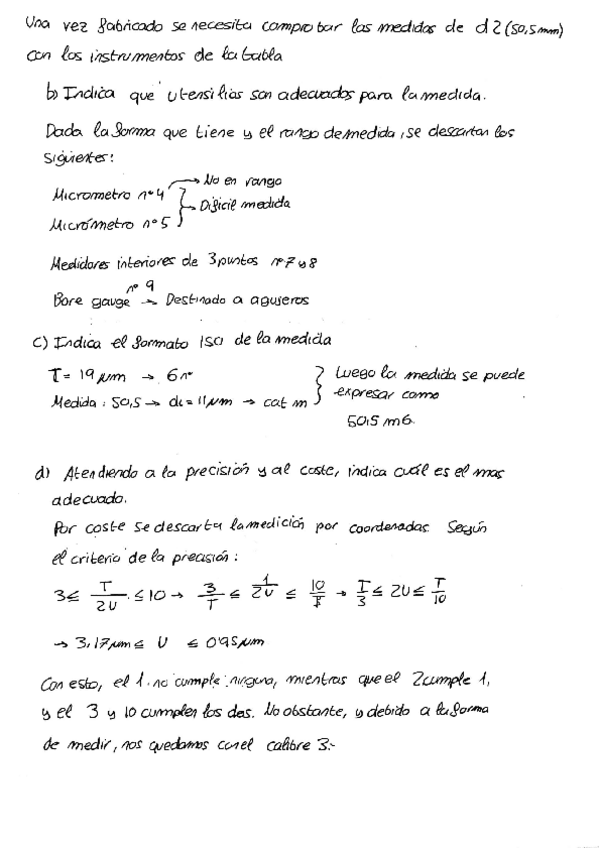 Una vez fabricado se necesita comprobar las medidas de d2 (50,5mm)
con los instrumentos de la tabla
b) Indica que utensilios son adecuados para la medida.
Dada la forma que tiene y el rango de medida, se descartan los
siguientes:
Micrometro nº4 → No en rango
Micrómetro nº5 } → Dificil medida
Medidores interiores de 3 puntos nº7 y 8
Bore gauge nº 9 → Destinado a agujeros
c) Indica el formato ISO de la medida
T = 19 μm → 6
Medida: 50,5 → di = 11 μm → cat m } Luego la medida se puede
expresar como
50,5 m6.
d) Atendiendo a la precisión y al coste, indica cuál es el mas
adecuado.
Por coste se descarta la medición por coordenadas. Según
el criterio de la precisión:
3 ≤ T/2U ≤ 10 → 3/T ≤ 1/2U ≤ 10/T → T/3 ≤ 2U ≤ T/10
→ 3,17 μm ≤ U ≤ 0'95 μm
Con esto, el 1 no cumple ninguna, mientras que el 2 cumple 1,
y el 3 y 10 cumplen los dos. No obstante, y debido a la forma
de medir, nos quedamos con el calibre 3.-